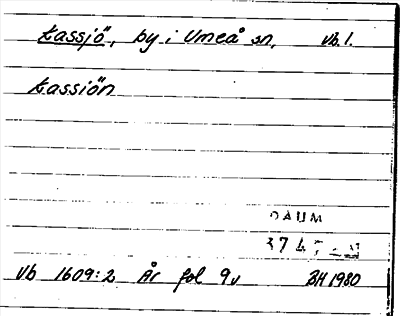 Kassjö, by i Umeå sn, Vb.l.
Kassiön
DAUM
Vb 1609:2 År fol 9v BH 1980